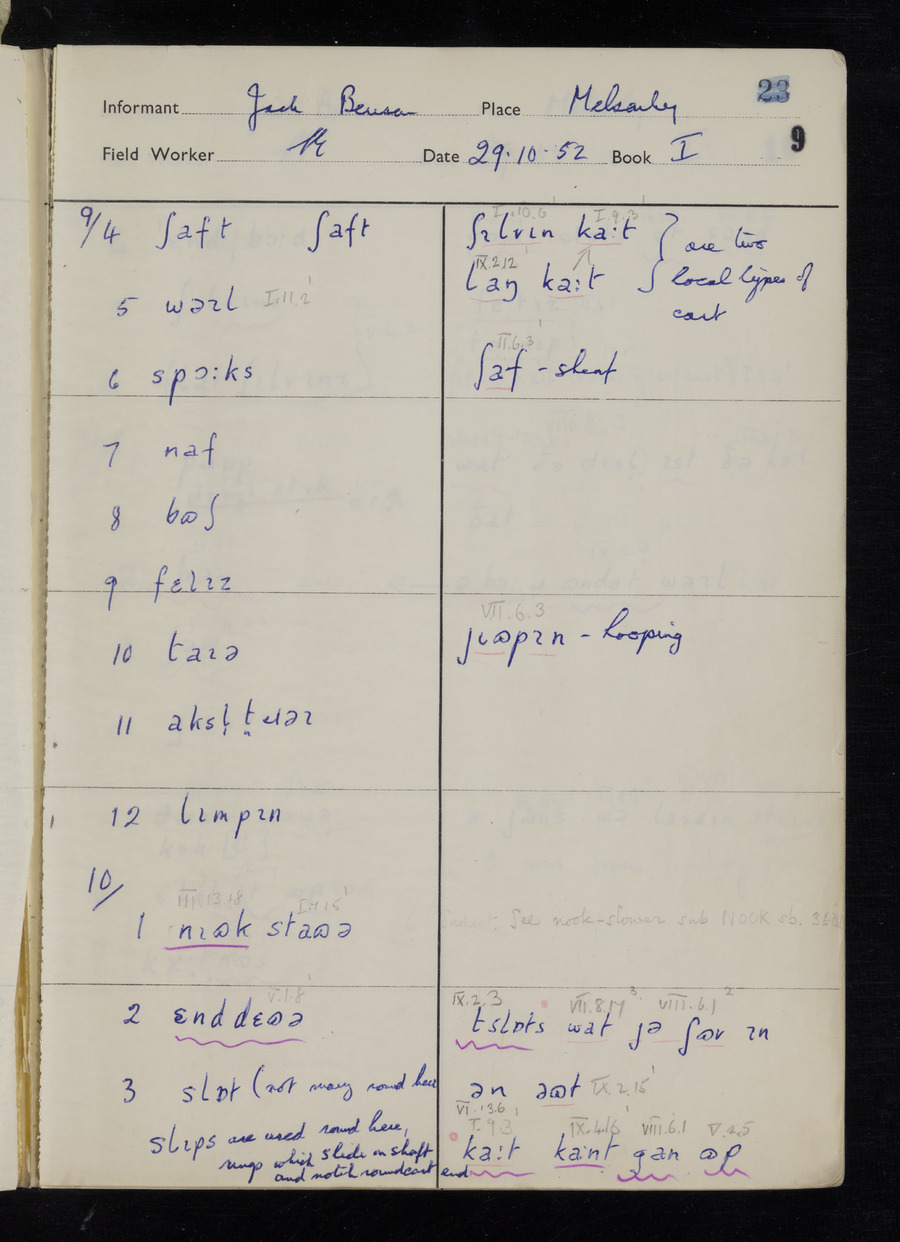 23
Informant Jack Benson Place Melsonby
9
Field Worker Date 29.10.52 Book I
9/4 ʃaft ʃaft
I.10.6 I.9.3
ʃɪlvɪn ka:t } are two
IX.2.12
laŋ ka:t } local types of
cart
5 wɔɪl I.11.2
6 spɔ:ks
II.6.3
ʃaf - sheaf
7 naf
8 bɷʃ
9 fɛlɪz
10 taɪə
VII.6.3
jɩɷpɪn - hooping
11
12 lɪmpɪn
10/
III.13.18
1 nɪɷk staɷə
See nook-stower sub NOOK sb. 3
V.1.8
2 ɛnd dɛɷə
IX.2.3 VII.8.17 VIII.6.1
tslɒts wat jə ʃɷv ɪn
3 slɒt (not many round here
ən əɷt IX.2.15
slɪps are used round here,
rings which slide on shaft
and notch round cart end
VI.13.6
I.9.3 IX.4.16 VIII.6.1 V.2.5
ka:t kaint gan ɷp